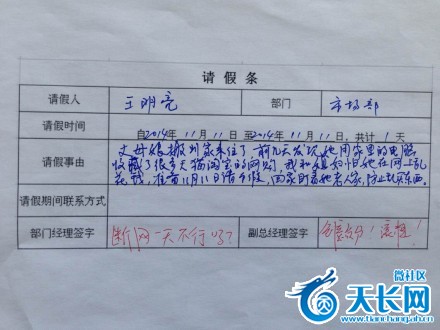 请假条
请假人 王明亮 部门 市场部
请假时间 自2014年11月11日至2014年11月11日，共计1天
请假事由 丈母娘搬到家来住了，前几天发现她用家里的电脑
收藏了很多天猫淘宝的网购，我和媳妇怕她在网上乱
花钱，准备11月11日请个假，回家盯着她老人家，防止乱买东西。
请假期间联系方式
部门经理签字 断网一天不行吗？ 副总经理签字
微社区
天长网
www.tianchang.ah.cn